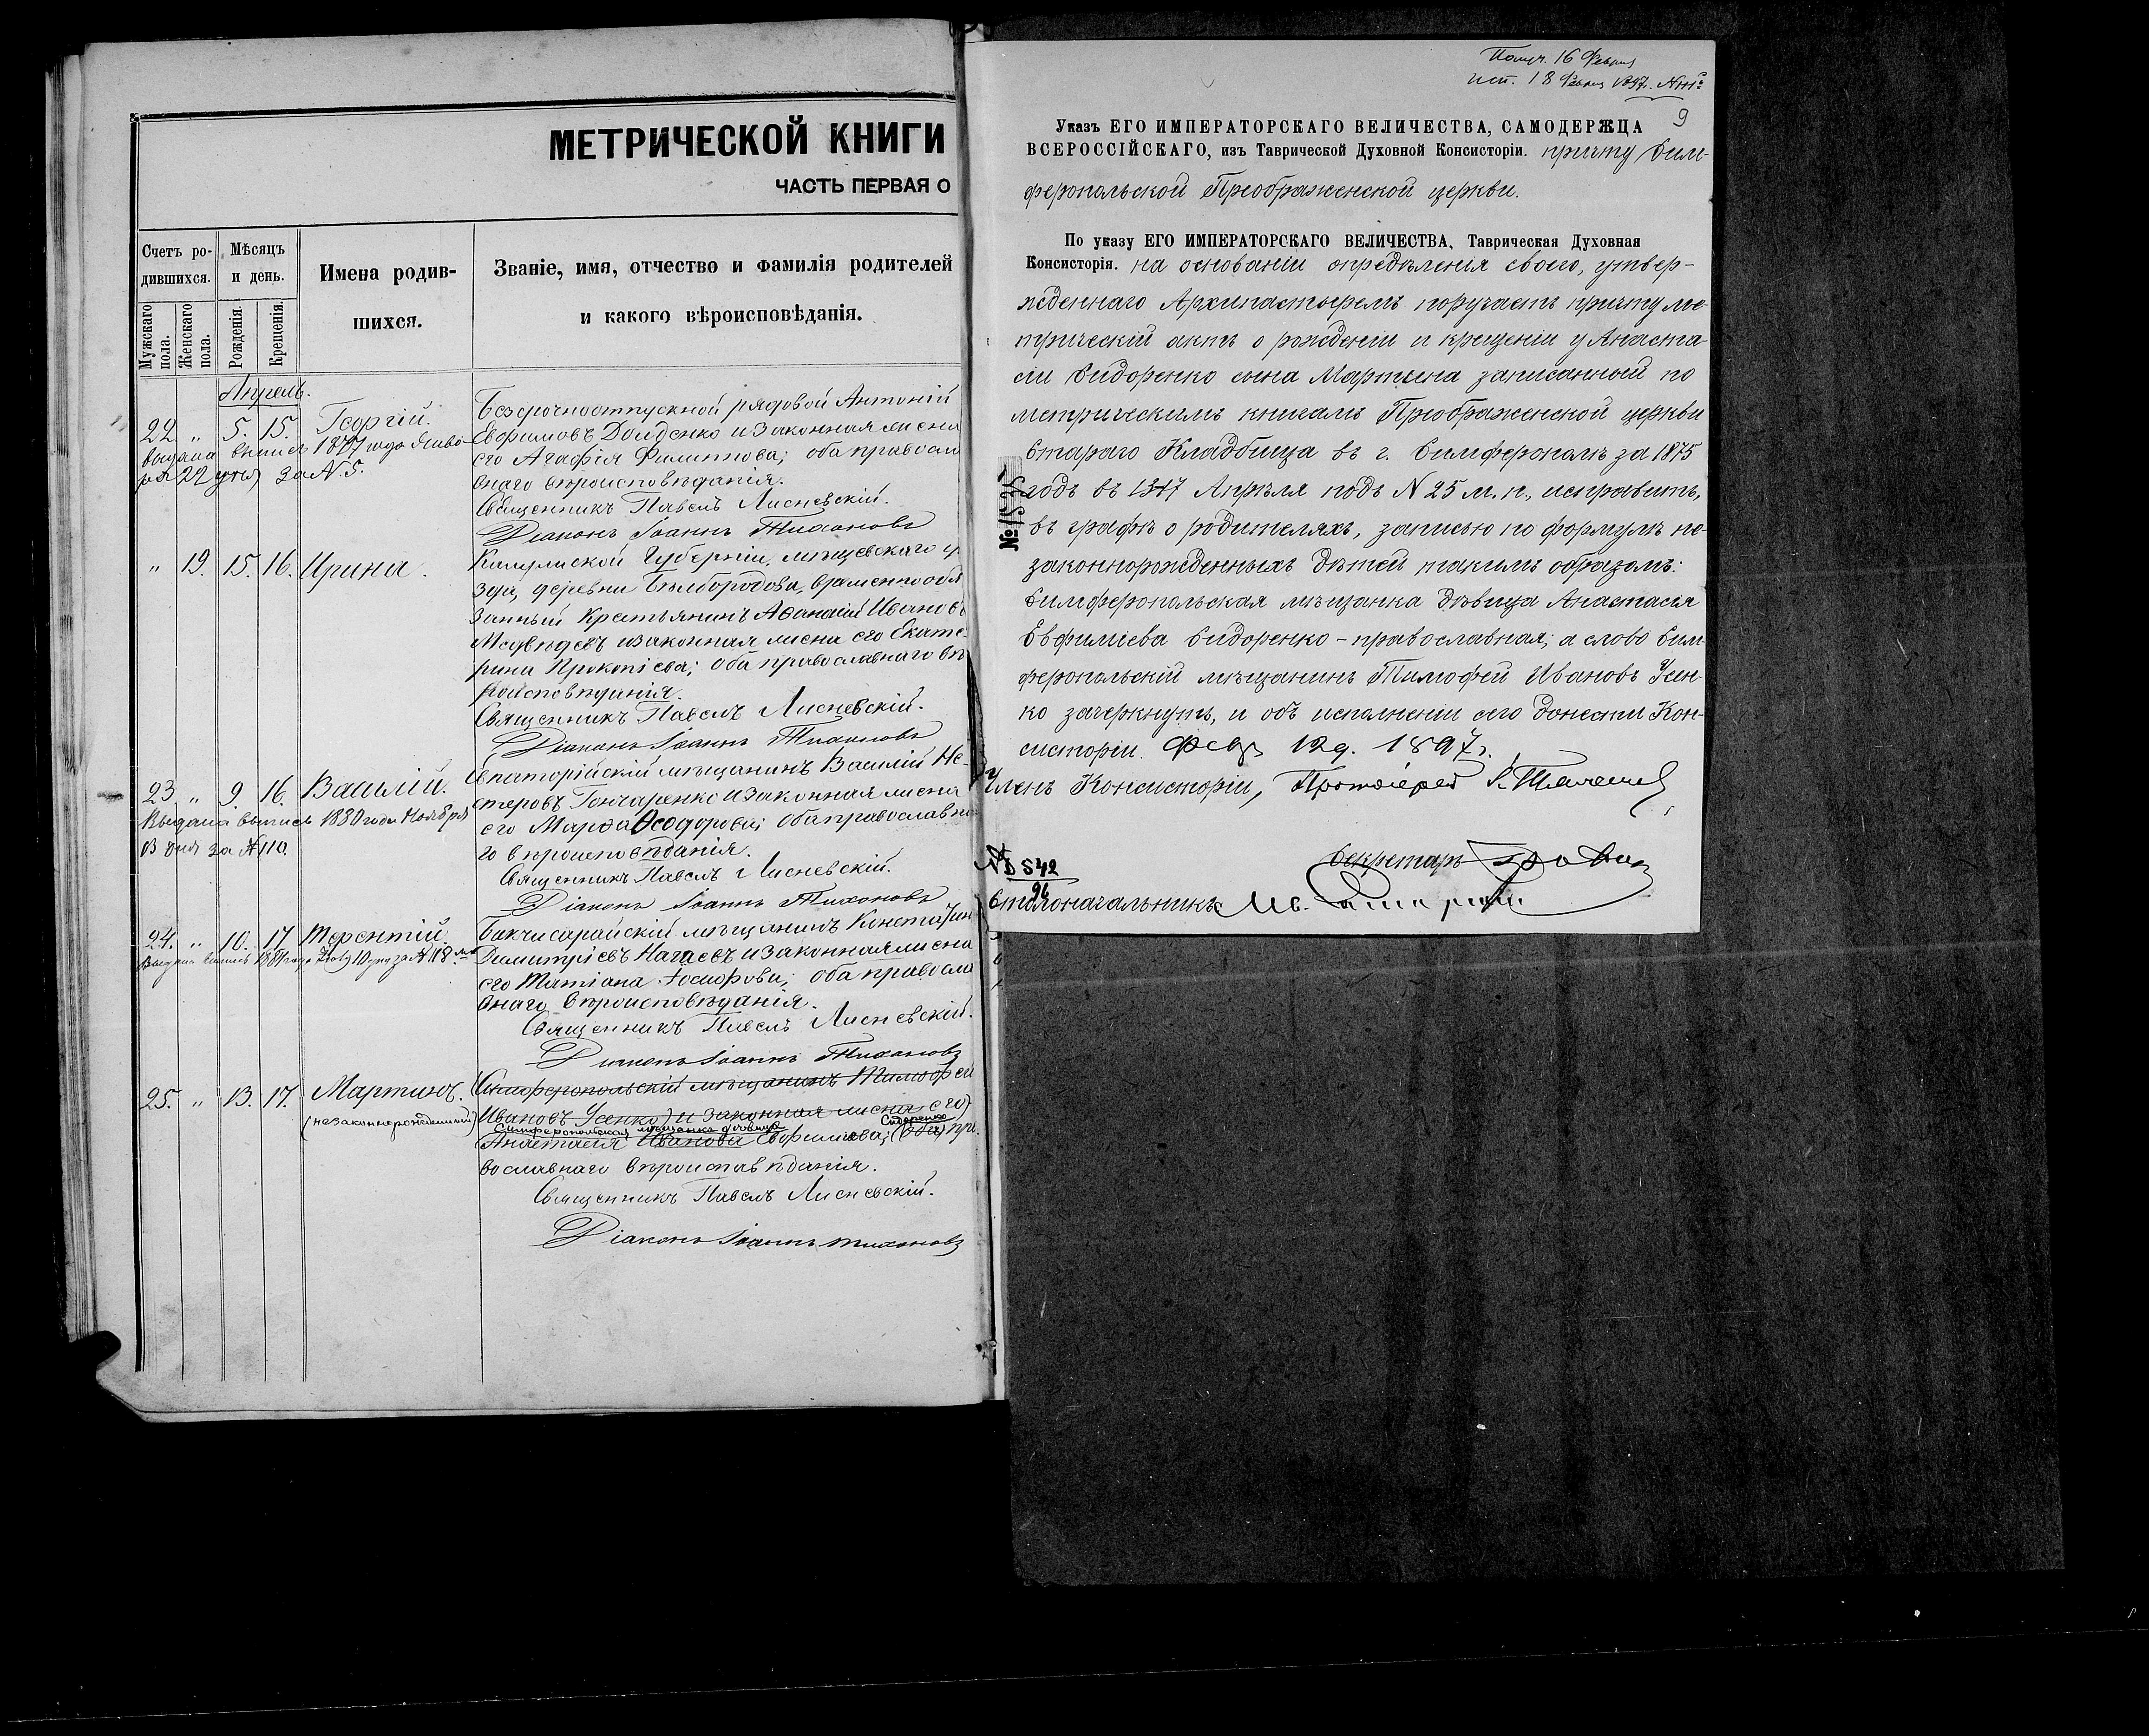 МЕТРИЧЕСКОЙ КНИГИ
ЧАСТЬ ПЕРВАЯ О
Счетъ ро-
дившихся.
Мѣсяцъ
и день.
Имена родив-
шихся.
Званіе, имя, отчество и фамилія родителей
и какого вѣроисповѣданія.
Мужскаго
пола.
Женскаго
пола.
Рожденія.
Крещенія.
Апрель.
22 „ 5. 15. Георгій.
выдана выпись 1897 года Янва-
ря 22 дня за N. 5.
Безсрочноотпускной рядовой Антоній
Евфимовъ Доиденко и законная жена
его Агафія Филиппова; оба правосла
внаго вѣроисповѣданія.
Священникъ Павелъ Лисневскій.
Діаконъ Іоаннъ Тихановъ
„ 19. 15. 16. Ирина.
Калужской Губерніи, мѣщевскаго у
зда, деревни Бѣлбородова, временно обя
занный крестьянинъ Афанасій Ивановъ
Медвѣдевъ и законная жена его Екате-
рина Прокопіева; оба православнаго вѣ
роисповѣданія.
Священникъ Павелъ Лисневскій.
Діаконъ Іоаннъ Тихановъ
23 „ 9. 16. Василій.
Выдана выпись 1880 года Ноября
13 дня за N 110.
Евпаторійскій мѣщанинъ Василій Не-
стеровъ Гончаренко и законная жена
его Марфа Ѳеодорова; оба православна
го вѣроисповѣданія.
Священникъ Павелъ Лисневскій.
Діаконъ Іоаннъ Тихановъ
24. „ 10. 17. Терентій.
Выдана выпись 1889 года 10 дня за N 118
Бахчисарайскій мѣщанинъ Константин
Димитріевъ Нагаевъ и законная жена
его Татіана Іосифова; оба правосла
внаго вѣроисповѣданія.
Священникъ Павелъ Лисневскій.
Діаконъ Іоаннъ Тихановъ
25. „ 13. 17. Мартинъ.
(незаконнорожденный)
Симферопольскій мѣщанинъ Тимофей
Ивановъ Усенко) и законная жена его)
Симферопольская мѣщанка дѣвица Сидоренко
Анастасія Иванова Евфиміева; (оба) пра-
вославнаго вѣроисповѣданія.
Священникъ Павелъ Лисневскій.
Діаконъ Іоаннъ Тихановъ
Получ. 16 Февраля
исп. 18 Февраля 1897.
9
Указъ ЕГО ИМПЕРАТОРСКАГО ВЕЛИЧЕСТВА, САМОДЕРЖЦА
ВСЕРОССІЙСКАГО, изъ Таврической Духовной Консисторіи. причту Сим-
феропольской Преображенской церкви.
По указу ЕГО ИМПЕРАТОРСКАГО ВЕЛИЧЕСТВА, Таврическая Духовная
Консисторія. на основаніи опредѣленія своего, утвер-
жденнаго Архипастыремъ поручаетъ причту ме-
трическій актъ о рожденіи и крещеніи у Анаста-
сіи Сидоренко сына Мартына записанный по
метрическимъ книгамъ Преображенской церкви
Стараго Кладбища въ г. Симферополѣ за 1875
годъ въ 13-17 Апрѣля подъ N 25 м. п., исправить,
въ графѣ о родителяхъ, записью по формулѣ не-
законнорожденныхъ дѣтей такимъ образомъ:
Симферопольская мѣщанка дѣвица Анастасія
Евфиміева Сидоренко - православная; а слово Сим-
феропольскій мѣщанинъ Тимофей Ивановъ Усен-
ко зачеркнуть, и объ исполненіи сего донести Кон-
систоріи. Февр 12 д. 1897 г.
№ 1535
Членъ Консисторіи, Протоіерей
Секретарь
N D 542
96
Столоначальникъ